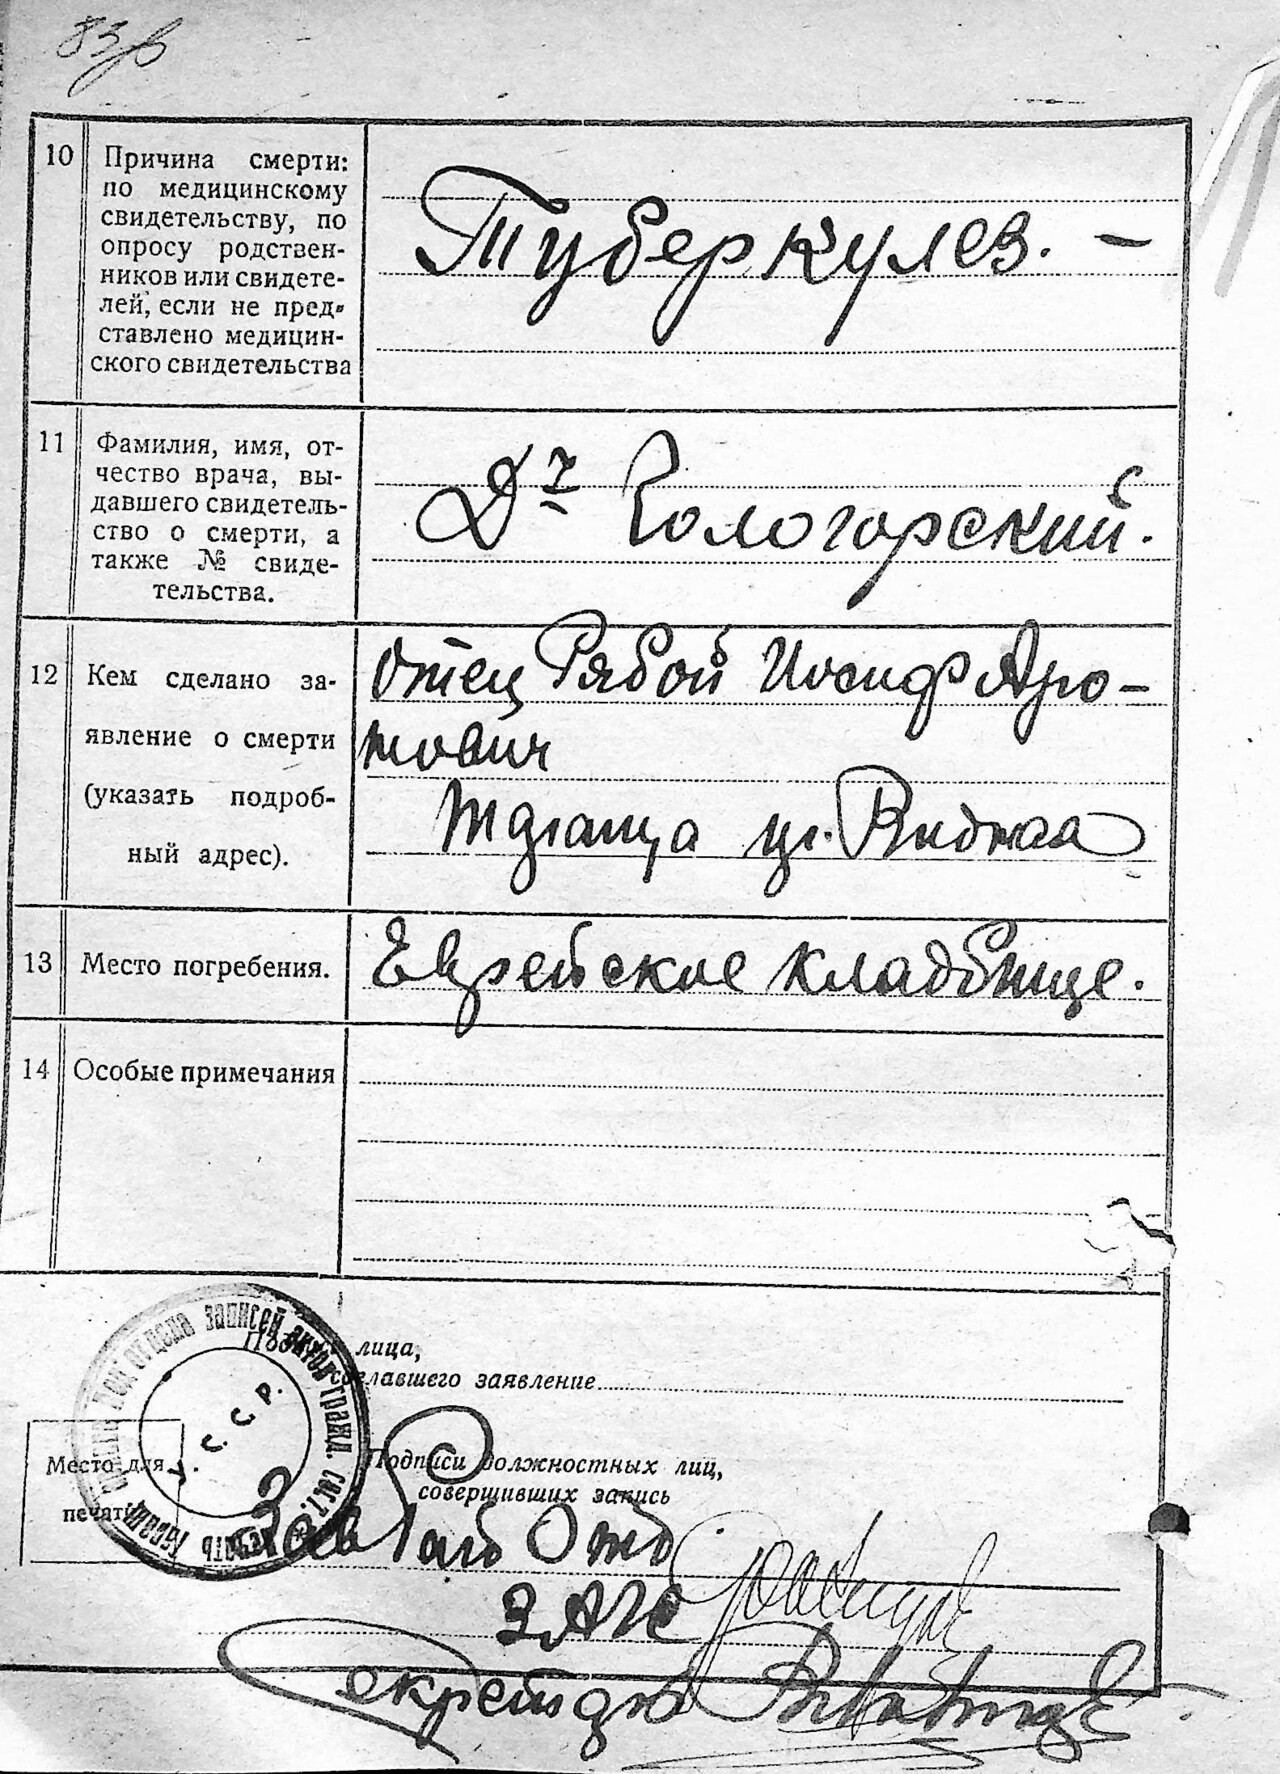 83
10
Причина смерти:
по медицинскому
свидетельству, по
опросу родствен-
ников или свидете-
лей, если не пред-
ставлено медицин-
ского свидетельства
Туберкулез. -
11
Фамилия, имя, от-
чество врача, вы-
давшего свидетель-
ство о смерти, а
также № свиде-
тельства.
Дъ
12
Кем сделано за-
явление о смерти
(указать подроб-
ный адрес).
Отец Рябой Иосиф Аро-
нович
13
Место погребения.
Еврейское кладбище.
14
Особые примечания
отдела записей актов гражд. сост.
У. С. С. Р.
лица,
сделавшего заявление
Место для
печати
Подписи должностных лиц,
совершивших запись
Зав Рай Отд
ЗАГС
Секретарь